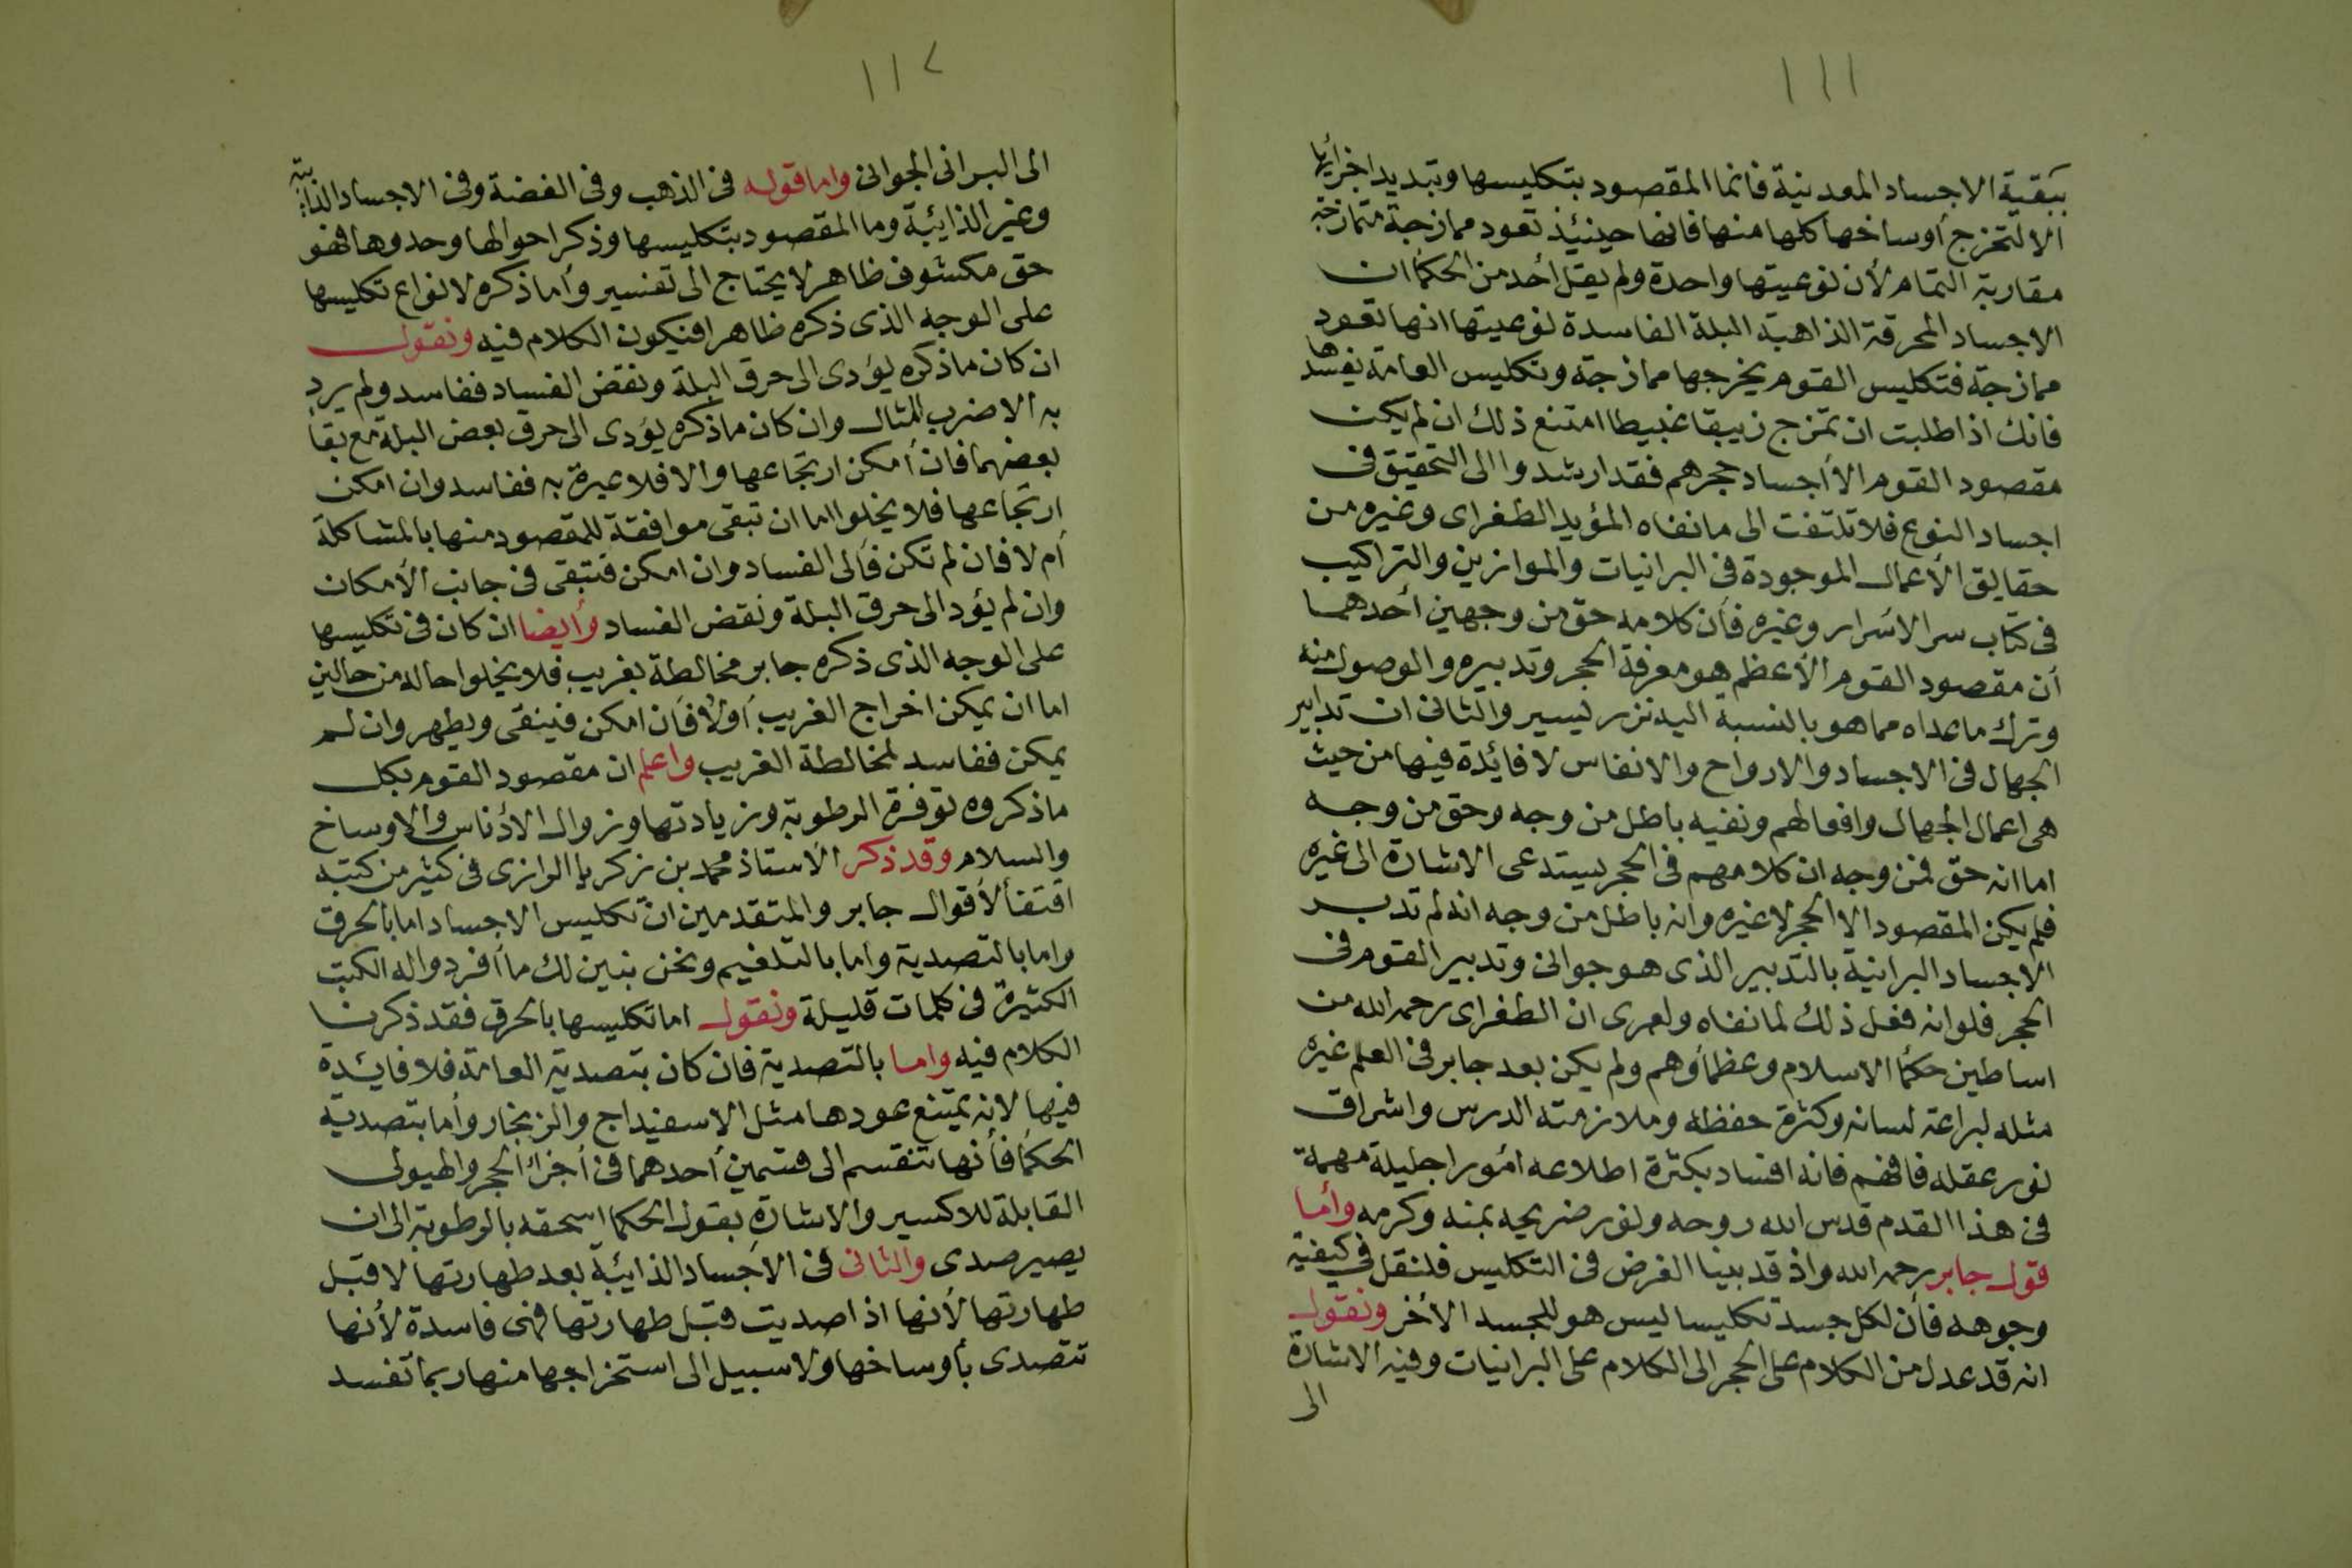 ١١١
ببقية الاجساد المعدنية فانما المقصود بتكليسها وتبديد اجزائها
الا لتخرج أوساخها كلها منها فانها حينئيذ تعود ممازجة متمازجة
مقاربة التمام لأن نوعيتها واحدة ولم يقل أحد من الحكما ان
الاجساد المحرقة الذاهبة البلة الفاسدة لنوعيتها انها تعود
ممازجة فتكليس القوم يخرجها ممازجة وتكليس العامة يفسدها
فانك اذا طلبت ان تمزج زيبقا غبيطا امتنع ذلك ان لم يكن
مقصود القوم الا أجساد حجرهم فقد ارشدوا الى التحقيق في
اجساد النوع فلا تلتفت الى ما نفاه المؤيد الطغراى وغيره من
حقايق الأعمال الموجودة في البرانيات والموازين والتراكيب
فى كتاب سر الاسرار وغيره فأن كلامه حق من وجهين أحدهما
أن مقصود القوم الأعظم هو معرفة الحجر وتدبيره والوصول منه
وترك ما عداه مما هو بالنسبة اليه نزر ليسير والثانى ان تدابير
الجهال فى الاجساد والارواح والانفاس لا فائدة فيها من حيث
هى اعمال الجهال وافعالهم ونفيه باطل من وجه وحق من وجه
اما انه حق فمن وجه ان كلامهم فى الحجر يستدعى الاشارة الى غيره
فلم يكن المقصود الا الحجر لا غيره وانه باطل من وجه انه لم تدبر
الاجساد البرانية بالتدبير الذى هو جوانى وتدبير القوم فى
الحجر فلو انه فعل ذلك لما نفاه ولعمرى ان الطغراى رحمه الله من
اساطين حكما الاسلام وعظماؤهم ولم يكن بعد جابر فى العلم غيره
مثله لبراعة لسانه وكثرة حفظه وملازمته الدرس واشراق
نور عقله فافهم فانه افساد بكثرة اطلاعه امورا جليلة مهمة
فى هذا القدم قدس الله روحه ونور ضريحه بمنه وكرمه وأما
قول جابر رحمه الله واذ قد بينا الغرض فى التكليس فلنقل فى كيفية
وجوهه فأن لكل جسد تكليسا ليس هو للجسد الأخر ونقول
انه قد عدل من الكلام على الحجر الى الكلام على البرانيات وفيه الاشارة
الى
١١٢
الى البرانى الجوانى واما قوله فى الذهب وفى الفضة وفى الاجساد الذائبة
وغير الذائبة وما المقصود بتكليسها وذكر احوالها وحدوها فهو
حق مكشوف ظاهر لا يحتاج الى تفسير وأما ذكره لانواع تكليسها
على الوجه الذى ذكره ظاهرا فيكون الكلام فيه ونقول
ان كان ما ذكره يؤدى الى حرق البلة ونقض الفساد ففاسد ولم يرد
به الا ضرب المثال وان كان ما ذكره يؤدى الى حرق بعض البلة مع بقا
بعضهما فان أمكن ارتجاعها والا فلا عبرة به ففاسد وان امكن
ارتجاعها فلا يخلوا اما ان تبقى موافقة للمقصود منها بالمشاكلة
أم لا فان لم تكن فألى الفساد وان امكن فتبقى فى جانب الأمكان
وان لم يؤد الى حرق البلة ونقض الفساد وأيضا ان كان فى تكليسها
على الوجه الذى ذكره جابر مخالطة بغريب فلا يخلوا حاله من حالين
اما ان يمكن اخراج الغريب أولا فأن امكن فينقى ويطهر وان لم
يمكن ففاسد لمخالطة الغريب واعلم ان مقصود القوم بكل
ما ذكروه توفرة الرطوبة وزيادتها وزوال الأدناس والاوساخ
والسلام وقد ذكر الاستاذ محمد بن زكريا الرازى فى كثير من كتبه
اقتفأ لأقوال جابر والمتقدمين ان تكليس الاجساد اما بالحرق
واما بالتصدية واما بالتلغيم ونحن نبين لك ما أفردوا له الكتب
الكثيرة فى كلمات قليلة ونقول اما تكليسها بالحرق فقد ذكرنا
الكلام فيه واما بالتصدية فان كان بتصدية العامة فلا فائدة
فيها لانه يمتنع عودها مثل الاسفيداج والزنجار وأما بتصدية
الحكما فأنها تنقسم الى قسمين أحدهما فى أجزا الحجر والهيولى
القابلة للاكسير والاشارة بقول الحكما اسحقه بالرطوبة الى ان
يصير صدى والثانى فى الأجساد الذائبة بعد طهارتها لا قبل
طهارتها لأنها اذا صديت قبل طهارتها فهى فاسدة لأنها
تتصدى بأوساخها ولا سبيل الى استخراجها منها ربما تفسد